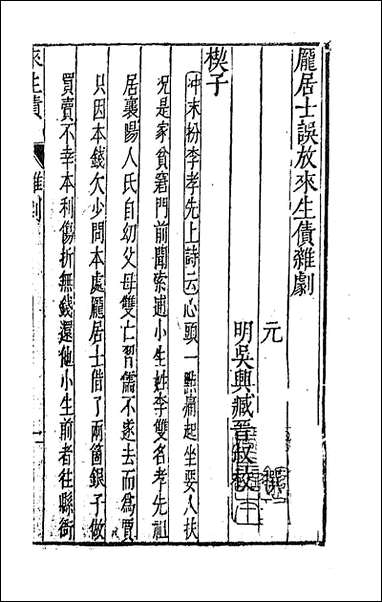 龐居士誤放來生債雜劇
元　　撰
明吳興臧晉叔校
楔子
冲末扮李孝先上詩云心頭一點痛起坐要人扶
况是家貧窘門前聞索逋小生姓李雙名孝先祖
居襄陽人氏自幼父母雙亡習儒不遂去而爲賈
只因本錢欠少問本處龐居士借了兩箇銀子做
買賣不幸本利傷折無錢還他小生前者往縣衙
來生債
雜劇
一